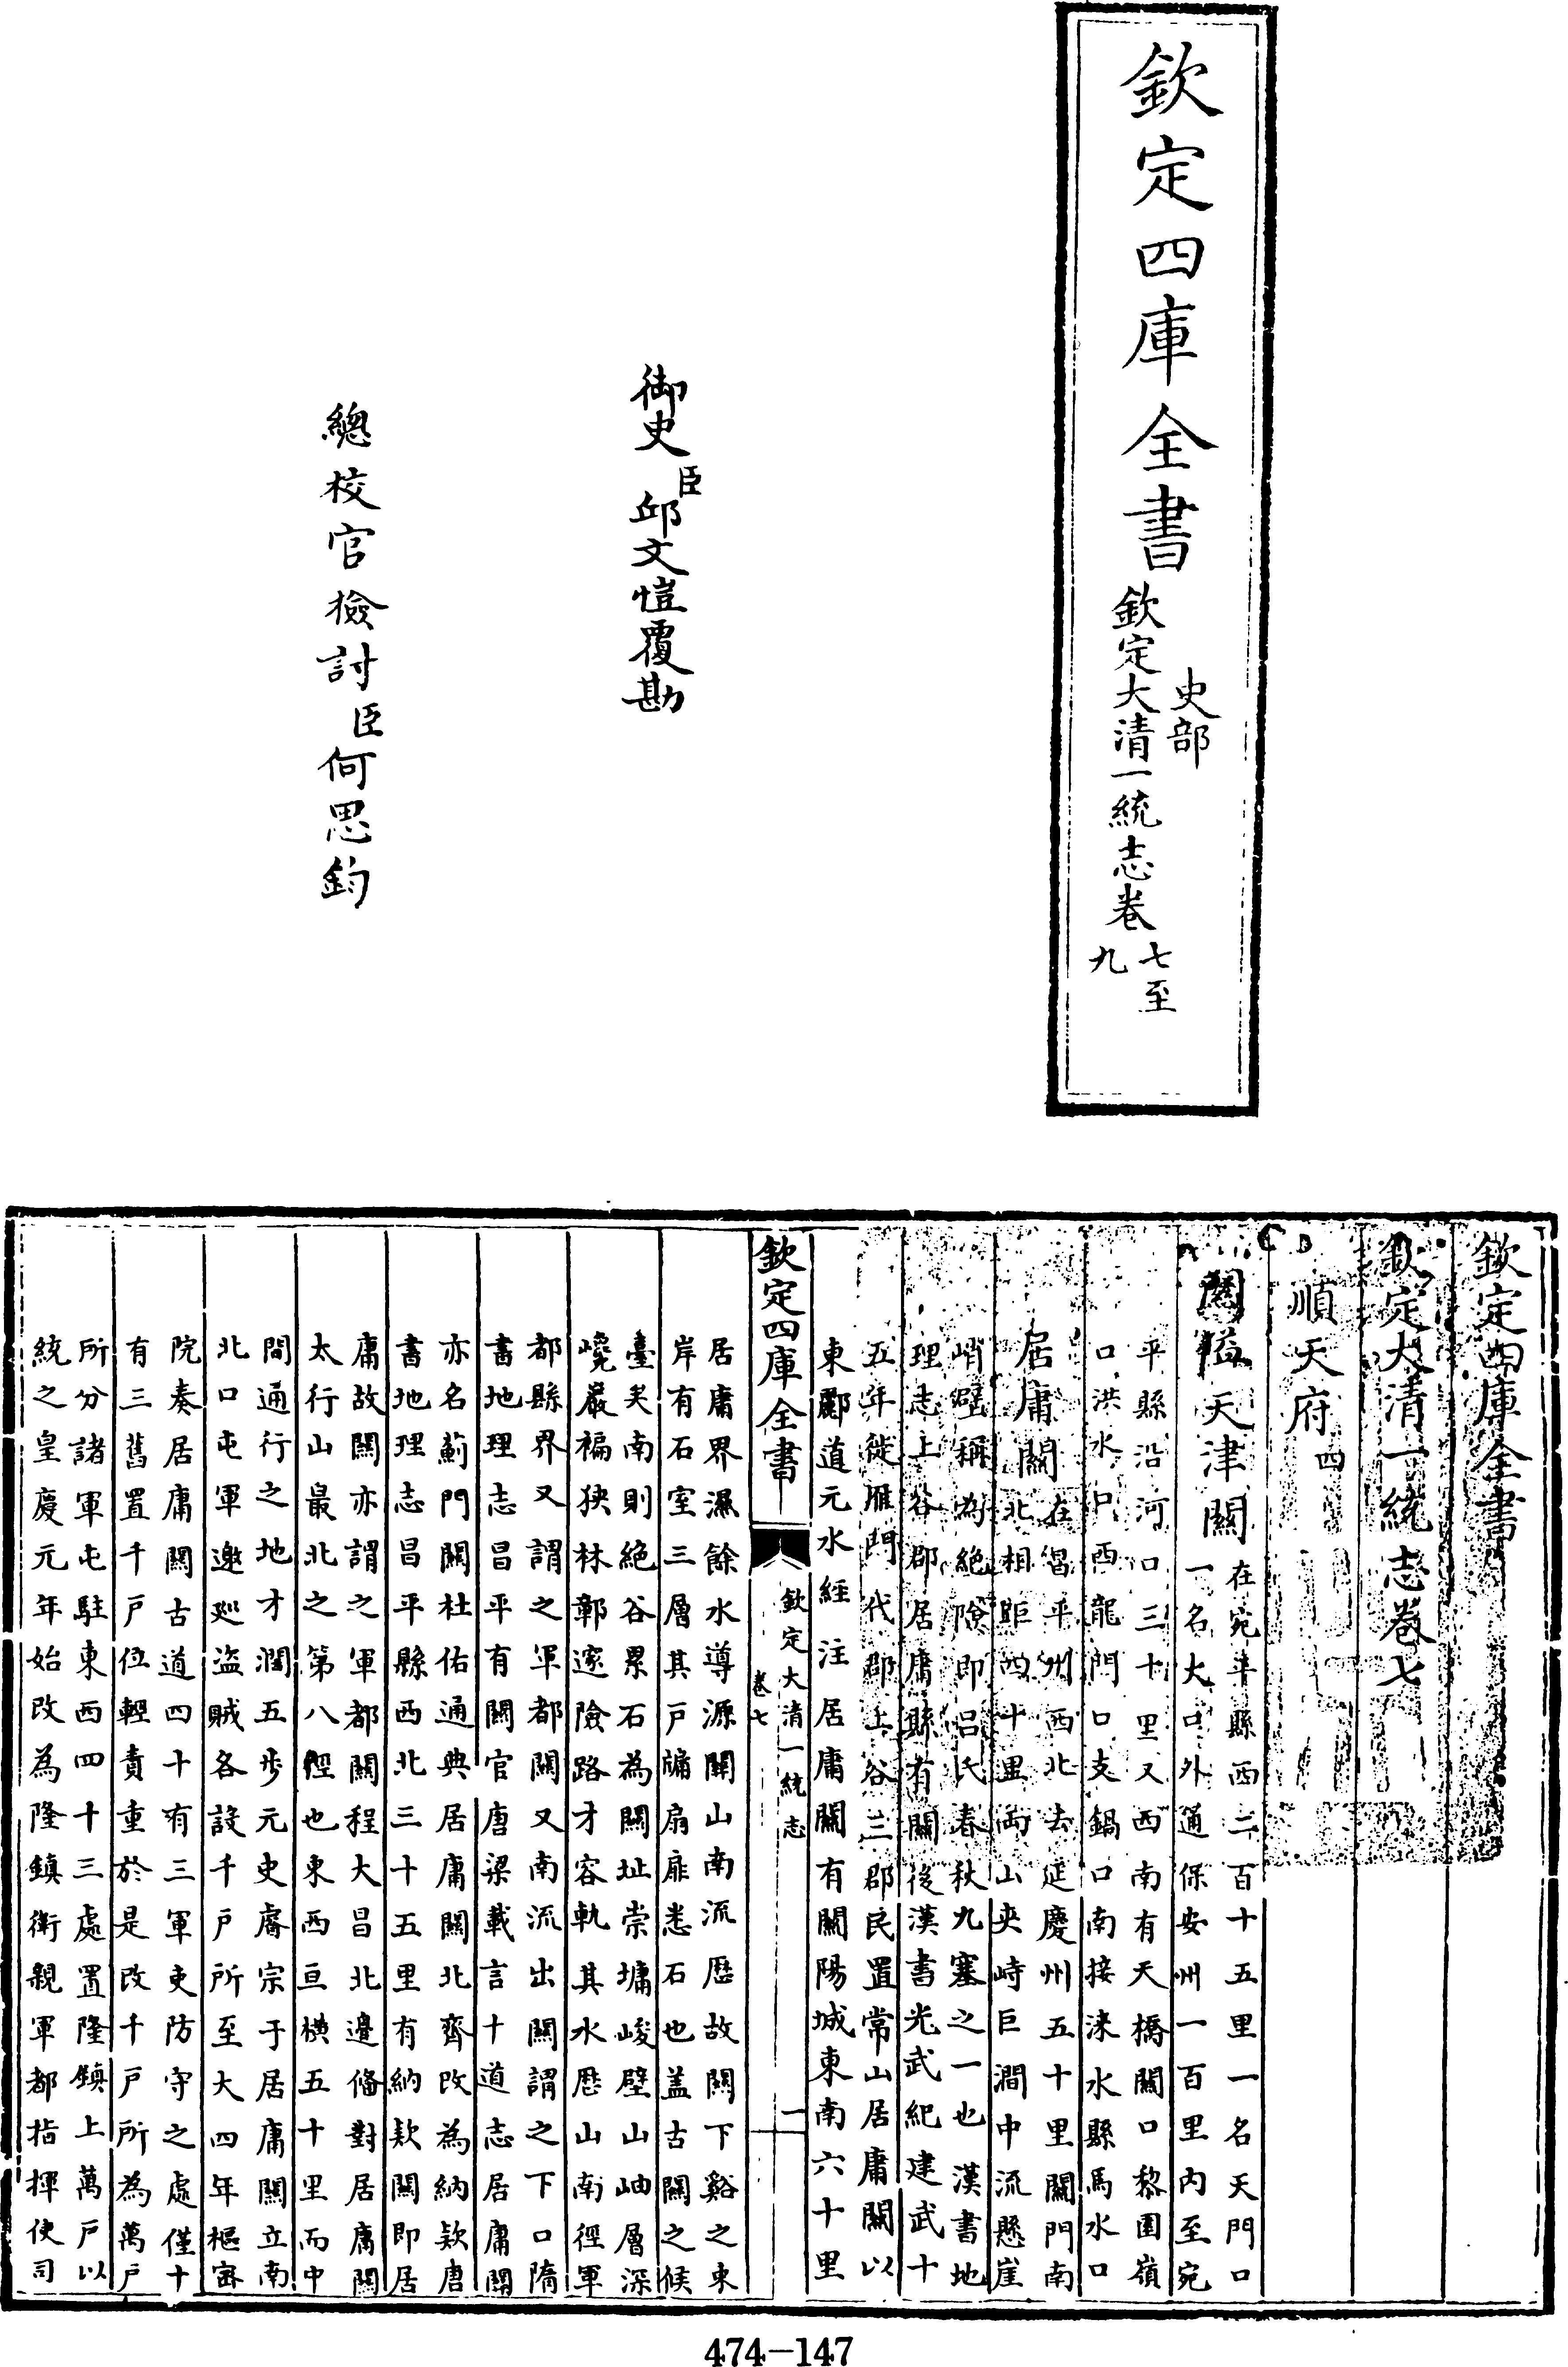 欽定四庫全書
史部
欽定大清一統志卷
七至
九
御史臣邱文愷覆勘
總校官檢討臣何思鈞
欽定四庫全書
欽定大清一統志卷七
順天府四
關隘
天津關
在宛平縣西二百十五里一名天門口
一名大口外通保安州一百里內至宛
平縣沿河口三十里又西南有天橋關口黎園嶺
口洪水口西龍門口支鍋口南接淶水縣馬水口
居庸關
在昌平州西北去延慶州五十里關門南
北相距四十里兩山夾峙巨澗中流懸崖
峭壁稱為絕險即呂氏春秋九塞之一也漢書地
理志上谷郡居庸縣有關後漢書光武紀建武十
五年徙雁門代郡上谷三郡民置常山居庸關以
東酈道元水經注居庸關有關陽城東南六十里
欽定四庫全書
欽定大清一統志
卷七
一
居庸界濕餘水導源關山南流歷故關下谿之東
岸有石室三層其戶牖扇扉悉石也蓋古關之候
臺矣南則絕谷累石為關址崇墉峻壁山岫層深
巉巖褊狹林鄣邃險路才容軌其水歷山南徑軍
都縣界又謂之軍都關又南流出關謂之下口隋
書地理志昌平有關官唐梁載言十道志居庸關
亦名薊門關杜佑通典居庸關北齊改為納款唐
書地理志昌平縣西北三十五里有納款關即居
庸故關亦謂之軍都關程大昌北邊備對居庸關
太行山最北之第八徑也東西亘橫五十里而中
間通行之地才濶五步元史睿宗于居庸關立南
北口屯軍邀廵盜賊各設千戶所至大四年樞密
院奏居庸關古道四十有三軍吏防守之處僅十
有三舊置千戶位輕責重於是改千戶所為萬戶
所分諸軍屯駐東西四十三處置隆鎮上萬戶以
統之皇慶元年始改為隆鎮衛親軍都指揮使司
474-147